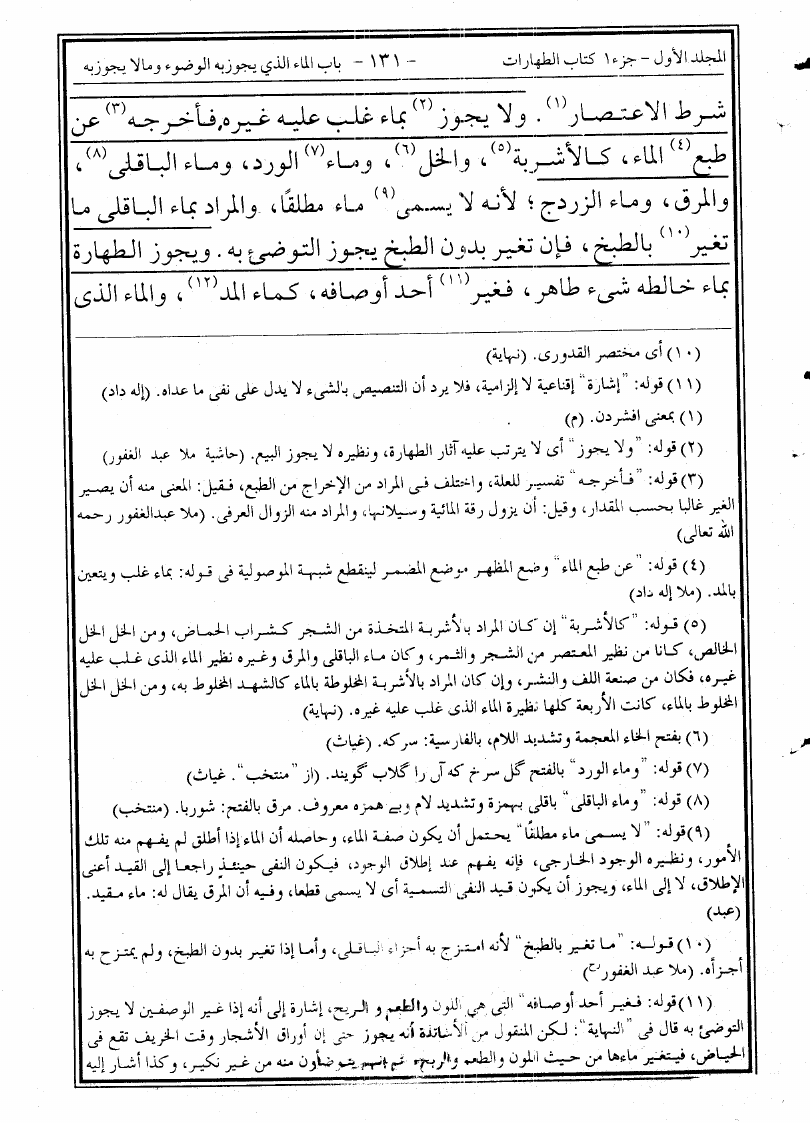 المجلد الأول - جزء١ كتاب الطهارات - ١٣١ - باب الماء الذي يجوز به الوضوء ومالا يجوز به
شرط الاعتصار(١). ولا يجوز(٢) بماء غلب عليه غيره، فأخرجه(٣) عن
طبع(٤) الماء، كالأشربة(٥)، والخل(٦)، وماء(٧) الورد، وماء الباقلى(٨)،
والمرق، وماء الزردج؛ لأنه لا يسمى(٩) ماء مطلقًا، والمراد بماء الباقلى ما
تغير(١٠) بالطبخ، فإن تغير بدون الطبخ يجوز التوضئ به. ويجوز الطهارة
بماء خالطه شىء طاهر، فغير(١١) أحد أوصافه، كماء المد(١٢)، والماء الذى
(١٠) أى مختصر القدورى. (نهاية)
(١١) قوله: "إشارة" إقناعية لا إلزامية، فلا يرد أن التنصيص بالشىء لا يدل على نفى ما عداه. (إله داد)
(١) بمعنى افشردن. (م)
(٢) قوله: "ولا يجوز" أى لا يترتب عليه آثار الطهارة، ونظيره لا يجوز البيع. (حاشية ملا عبد الغفور)
(٣) قوله: "فأخرجه" تفسير للعلة، واختلف فى المراد من الإخراج من الطبع، فقيل: المعنى منه أن يصير
الغير غالبا بحسب المقدار، وقيل: أن يزول رقة المائية وسيلانها، والمراد منه الزوال العرفى. (ملا عبدالغفور رحمه
الله تعالى)
(٤) قوله: "عن طبع الماء" وضع المظهر موضع المضمر لينقطع شبهة الموصولية فى قوله: بماء غلب ويتعين
بالمد. (ملا إله داد)
(٥) قوله: "كالأشربة" إن كان المراد بالأشربة المتخذة من الشجر كشراب الحماض، ومن الخل الخل
الخالص، كانا من نظير المعتصر من الشجر والثمر، وكان ماء الباقلى والمرق وغيره نظير الماء الذى غلب عليه
غيره، فكان من صنعة اللف والنشر، وإن كان المراد بالأشربة المخلوطة بالماء كالشهد المخلوط به، ومن الخل الخل
المخلوط بالماء، كانت الأربعة كلها نظيرة الماء الذى غلب عليه غيره. (نهاية)
(٦) بفتح الخاء المعجمة وتشديد اللام، بالفارسية: سركه. (غياث)
(٧) قوله: "وماء الورد" بالفتح گل سرخ كه آن را گلاب گويند. (از "منتخب". غياث)
(٨) قوله: "وماء الباقلى" باقلى بهمزة وتشديد لام وبے همزه معروف. مرق بالفتح: شوربا. (منتخب)
(٩) قوله: "لا يسمى ماء مطلقًا" يحتمل أن يكون صفة الماء، وحاصله أن الماء إذا أطلق لم يفهم منه تلك
الأمور، ونظيره الوجود الخارجى، فإنه يفهم عند إطلاق الوجود، فيكون النفى حينئذ راجعا إلى القيد أعنى
الإطلاق، لا إلى الماء، ويجوز أن يكون قيد النفى التسمية أى لا يسمى قطعا، وفيه أن المرق يقال له: ماء مقيد.
(عبد)
(١٠) قوله: "ما تغير بالطبخ" لأنه امتزج به أجزاء الباقلى، وأما إذا تغير بدون الطبخ، ولم يمتزج به
أجزأه. (ملا عبد الغفورؒ)
(١١) قوله: "فغير أحد أوصافه" التى هى اللون والطعم و الريح، إشارة إلى أنه إذا غير الوصفين لا يجوز
التوضئ به قال فى "النهاية": لكن المنقول من الأساتذة أنه يجوز حتى إن أوراق الأشجار وقت الخريف تقع فى
الحياض، فيتغير ماءها من حيث اللون والطعم والريح، ثم إنهم يتوضأون منه من غير نكير، وكذا أشار إليه